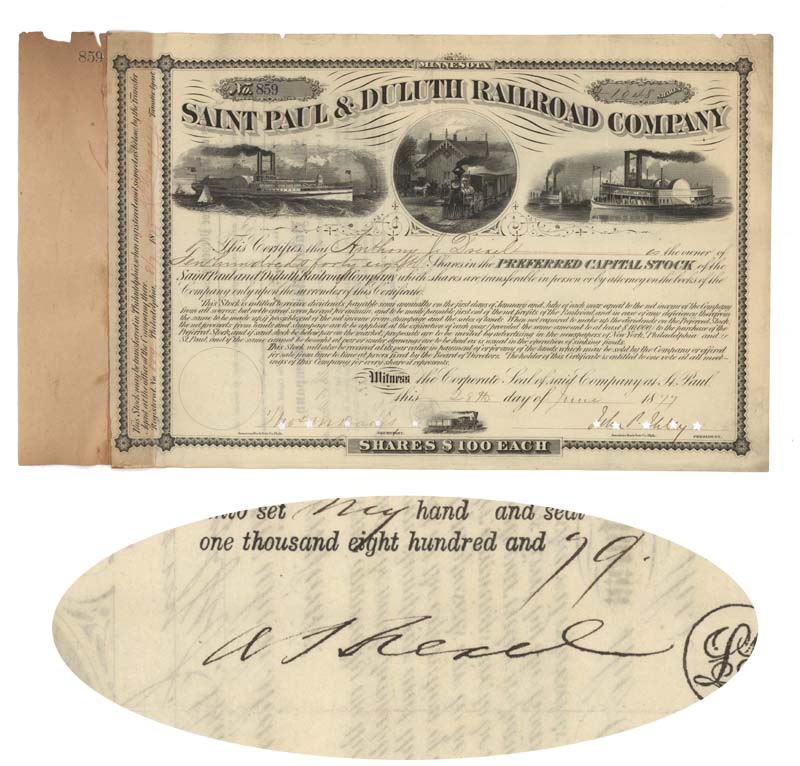 859
MINNESOTA
No. 859
1048 SHARES
SAINT PAUL & DULUTH RAILROAD COMPANY
This Certifies that Anthony J. Drexel is the owner of
Ten hundred & forty eight Shares in the PREFERRED CAPITAL STOCK of the
Saint Paul and Duluth Railroad Company which shares are transferable in person or by attorney on the books of the
Company only upon the surrender of this Certificate.
This Stock is entitled to receive dividends, payable semi annually on the first days of January and July of each year equal to the net income of the Company
from all sources, but not to exceed seven per cent per annum, and to be made payable first out of the net profits of the Railroad and in case of any deficiency therefrom
the same to be made up if practicable of the net income from stumpage and the sales of lands. When not required to make up the dividends on the Preferred Stock,
the net proceeds from lands and stumpage are to be applied, at the expiration of each year, provided the same amount to at least $10,000, to the purchase of the
Preferred Stock
St. Paul, and if the same cannot be bought at par or under drawings are to be had as is usual in the operation of sinking funds.
This Stock will also be received at its par value in payment of or for any of the lands which may be sold by the Company or offered
for sale from time to time at prices fixed by the Board of Directors. The holder of this Certificate is entitled to one vote at all meet-
ings of this Company for every share it represents.
Witness the Corporate Seal of said Company at St. Paul
this 28th day of June 1877
PRESIDENT.
SHARES $100 EACH
This Stock may be transferred in Philadelphia, when registered and signed as below, by the Transfer
Agent at the office of the Company there.
Registered No. Philadelphia, 187 Transfer Agent
unto set my hand and seal
one thousand eight hundred and 79.
A J Drexel